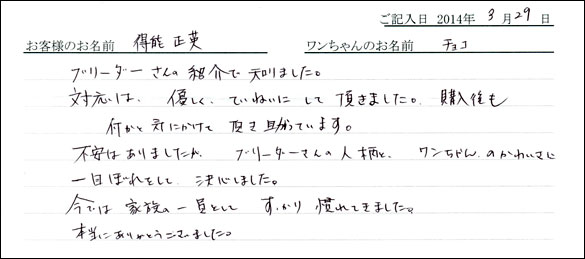 ご記入日 2014年 3月29日
お客様のお名前 得能 正英 ワンちゃんのお名前 チョコ
ブリーダーさんの紹介で知りました。
対応は、優しく、ていねいにして頂きました。購入後も
何かと気にかけて頂き助かっています。
不安はありましたが、ブリーダーさんの人柄と、ワンちゃんのかわいさに
一目ぼれをして、決心しました。
今では家族の一員としてすっかり慣れてきました。
本当にありがとうございました。